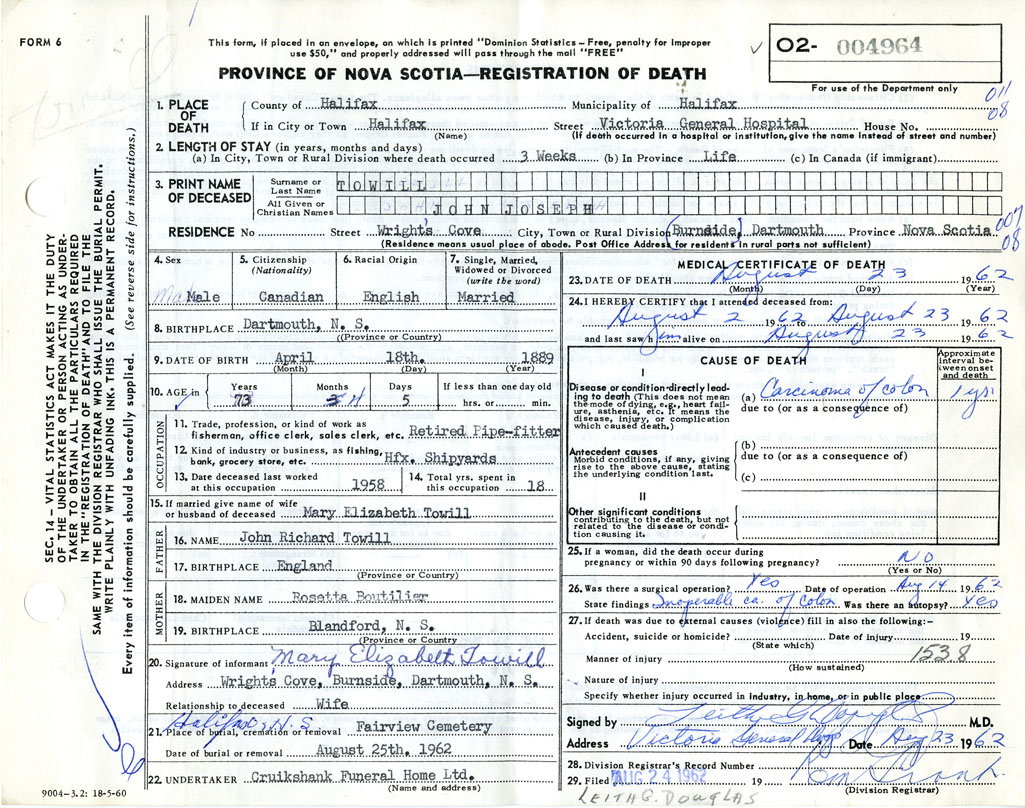 FORM 6
This form, if placed in an envelope, on which is printed "Dominion Statistics - Free, penalty for improper
use $50," and properly addressed will pass through the mail "FREE"
O2- 004964
PROVINCE OF NOVA SCOTIA—REGISTRATION OF DEATH
For use of the Department only
011
08
1. PLACE OF DEATH
County of Halifax Municipality of Halifax
If in City or Town Halifax Street Victoria General Hospital House No.
(Name) (If death occurred in a hospital or institution, give the name instead of street and number)
2. LENGTH OF STAY (in years, months and days)
(a) In City, Town or Rural Division where death occurred 3 Weeks (b) In Province Life (c) In Canada (if immigrant)
3. PRINT NAME OF DECEASED
Surname or Last Name TOWILL
All Given or Christian Names JOHN JOSEPH
RESIDENCE No Street Wright's Cove, City, Town or Rural Division (Burnside) Dartmouth Province Nova Scotia
(Residence means usual place of abode. Post Office Address for residents in rural parts not sufficient)
007
08
4. Sex Male
5. Citizenship (Nationality) Canadian
6. Racial Origin English
7. Single, Married, Widowed or Divorced (write the word) Married
8. BIRTHPLACE Dartmouth, N. S.
(Province or Country)
9. DATE OF BIRTH April 18th. 1889
(Month) (Day) (Year)
10. AGE in Years 73 Months 4 Days 5 If less than one day old hrs. or min.
OCCUPATION
11. Trade, profession, or kind of work as
fisherman, office clerk, sales clerk, etc. Retired Pipe-fitter
12. Kind of industry or business, as fishing,
bank, grocery store, etc. Hfx. Shipyards
13. Date deceased last worked
at this occupation 1958
14. Total yrs. spent in
this occupation 18
15. If married give name of wife
or husband of deceased Mary Elizabeth Towill
FATHER
16. NAME John Richard Towill
17. BIRTHPLACE England
(Province or Country)
MOTHER
18. MAIDEN NAME Rosetta Boutilier
19. BIRTHPLACE Blandford, N. S.
(Province or Country
20. Signature of informant Mary Elizabeth Towill
Address Wright's Cove, Burnside, Dartmouth, N. S.
Relationship to deceased Wife
Halifax, N.S
21. Place of burial, cremation or removal Fairview Cemetery
Date of burial or removal August 25th. 1962
22. UNDERTAKER Cruikshank Funeral Home Ltd.
(Name and address)
MEDICAL CERTIFICATE OF DEATH
23. DATE OF DEATH August 23 1962
(Month) (Day) (Year)
24. I HEREBY CERTIFY that I attended deceased from:
August 2 1962 to August 23 1962
and last saw him alive on August 23 1962
CAUSE OF DEATH
Approximate interval between onset and death
I
Disease or condition directly leading to death (This does not mean the mode of dying, e.g., heart failure, asthenia, etc. It means the disease, injury, or complication which caused death.)
(a) Carcinoma of colon 1 yr
due to (or as a consequence of)
Antecedent causes
Morbid conditions, if any, giving rise to the above cause, stating the underlying condition last.
(b)
due to (or as a consequence of)
(c)
II
Other significant conditions
contributing to the death, but not related to the disease or condition causing it.
25. If a woman, did the death occur during
pregnancy or within 90 days following pregnancy? NO
(Yes or No)
26. Was there a surgical operation? Yes Date of operation Aug 14 1962
State findings Inoperable ca. of colon Was there an autopsy? Yes
27. If death was due to external causes (violence) fill in also the following:-
Accident, suicide or homicide? Date of injury 19
(State which)
1538
Manner of injury
(How sustained)
Nature of injury
Specify whether injury occurred in industry, in home, or in public place
Signed by Leith G Douglas M.D.
Address Victoria General Hosp Date Aug 23 1962
28. Division Registrar's Record Number
29. Filed AUG 24 1962 19
(Division Registrar)
LEITH G. DOUGLAS
9004-3.2: 18-5-60
SEC. 14 - VITAL STATISTICS ACT MAKES IT THE DUTY
OF THE UNDERTAKER OR PERSON ACTING AS UNDER-
TAKER TO OBTAIN ALL THE PARTICULARS REQUIRED
IN THE "REGISTRATION OF DEATH" AND TO FILE THE
SAME WITH THE DIVISION REGISTRAR WHO SHALL ISSUE THE BURIAL PERMIT.
WRITE PLAINLY WITH UNFADING INK. THIS IS A PERMANENT RECORD.
Every item of information should be carefully supplied. (See reverse side for instructions.)